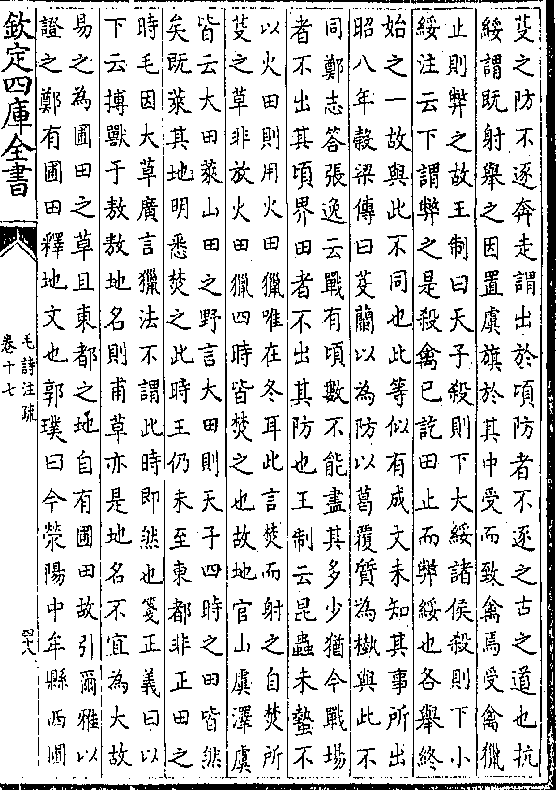 芟之防不逐奔走謂出於頃防者不逐之古之道也抗
綏謂既射舉之因置虞旗於其中受而致禽焉受禽獵
止則弊之故王制曰天子殺則下大綏諸侯殺則下小
綏注云下謂弊之是殺禽已訖田止而弊綏也各舉終
始之一故與此不同也此等似有成文未知其事所出
昭八年穀梁傳曰芟蘭以為防以葛覆質為槸與此不
同鄭志答張逸云戰有頃數不能盡其多少猶今戰場
者不出其頃界田者不出其防也王制云昆蟲未蟄不
以火田則用火田獵唯在冬耳此言焚而射之自焚所
芟之草非放火田獵四時皆焚之也故地官山虞澤虞
皆云大田萊山田之野言大田則天子四時之田皆然
矣既萊其地明悉焚之此時王仍未至東都非正田之
時毛因大草廣言獵法不謂此時即然也箋正義曰以
下云搏獸于敖敖地名則甫草亦是地名不宜為大故
易之為圃田之草且東都之地自有圃田故引爾雅以
證之鄭有圃田釋地文也郭璞曰今滎陽中牟縣西圃
欽定四庫全書
毛詩注疏
卷十七
四十八